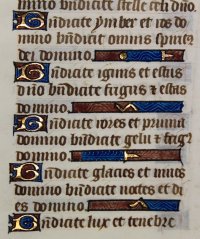 mino bn̄dicite stelle celi dn̄o.
Bn̄dicite ymber et ros do
mino bn̄dicite omnis spiritꝰ
dei domino.
Bn̄dicite ignis et estus
dn̄o bn̄dicite frigus ⁊ estas
domino.
Bn̄dicite rores et pruina
domino bn̄dicite gelu ⁊ frigꝰ
domino.
Bn̄dicite glacies et niues
domino bn̄dicite noctes et di
es domino.
Bn̄dicite lux et tenebre